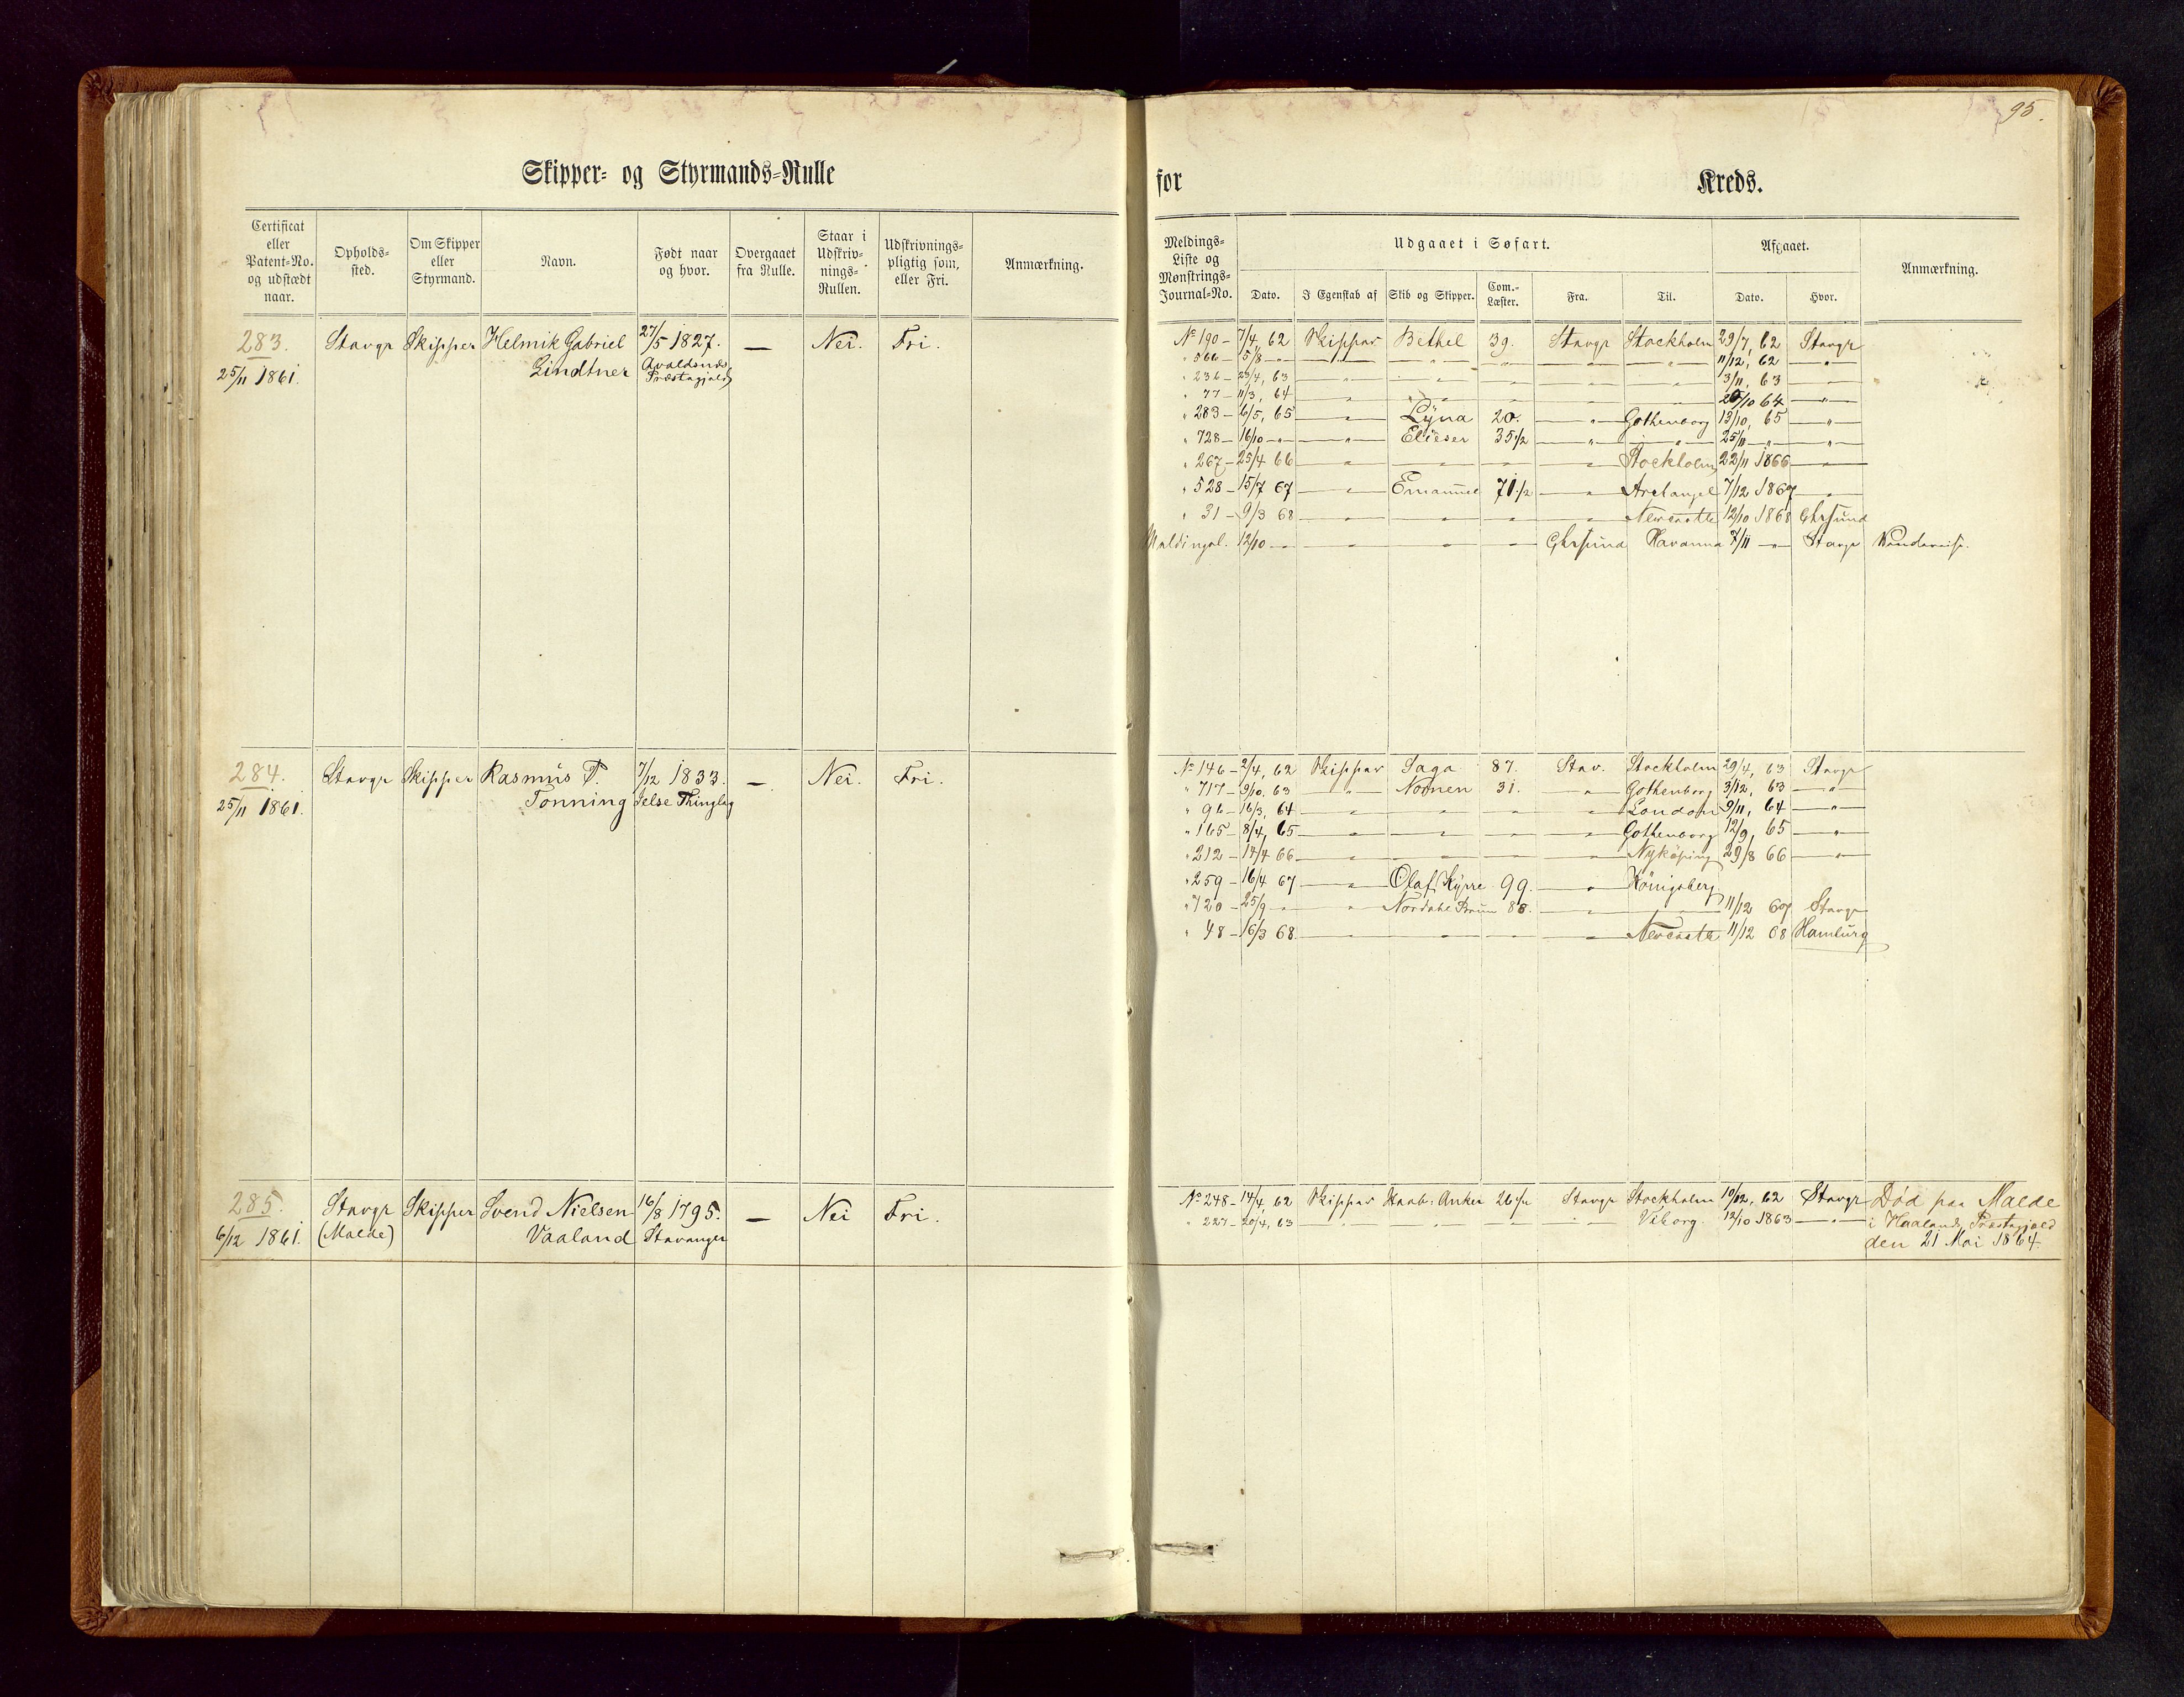 95.
Skipper- og Styrmands-Rulle
for Kreds.
Certificat eller Patent-No. og udstædt naar. Opholds-sted. Om Skipper eller Styrmand. Navn. Født naar og hvor. Overgaaet fra Rulle. Staar i Udskriv-nings-Rullen. Udskrivnings-pligtig som, eller Fri. Anmærkning.
Meldings-Liste og Mønstrings-Journal-No. Udgaaet i Søfart. Afgaaet. Anmærkning.
Dato. I Egenskab af Skib og Skipper. Com.-Læster. Fra. Til. Dato. Hvor.
283. Stavgr Skipper Helmik Gabriel 27/5 1827. — Nei. Fri.
25/11 1861. Lindtner Avaldsnes Præstegjæld
No 190 - 7/4, 62 Skipper Bethel 39. Stavgr Stockholm 29/7, 62 Stavgr
" 566 - 5/8 - " - " " " " " 11/12, 62 "
" 236 - 23/4, 63 " " " " " 3/11, 63 "
" 77 - 11/3, 64 " " " " " 20/10 64 "
" 283 - 6/5, 65 " Lyna 20. " Gothenborg 13/10, 65 "
" 728 - 16/10 - " - " Elieser 35 1/2 " " 25/11 - " - "
" 267 - 25/4 66 " " " " Stockholm 22/11 1866 "
" 528 - 15/7 67 " Emanuel 71 1/2 " Archangel 7/12 1867 "
" 31 - 9/3 68 " " " " Newcastle 12/10 1868 Ekrsund
Meldingsl. 12/10 - " " " " Ekrsund Havanna 7/11 - " - Stavgr
284. Stavgr Skipper Rasmus T. 7/12 1833. — Nei. Fri.
25/11 1861. Tonning Jelse Thinglag
No 146 - 2/4, 62 Skipper Saga 87. Stav. Stockholm 29/4, 63 Stavgr
" 717 - 9/10, 63 " Noonen 31. " Gothenborg 3/12, 63 "
" 96 - 16/3, 64 " " " " London 9/11, 64 "
" 165 - 8/4, 65 " " " " Gothenborg 12/9, 65 "
" 212 - 14/4 66 " " " " Nyköping 29/8 66 "
" 259 - 16/4 67 " Olaf Kyrre 99. " Königsberg
" 720 - 25/9 - " " Nordahl Brun 88. " " 11/12 67 Stavgr
" 48 - 16/3 68. " " " " Newcastle 11/12 68 Hamburg
285. Stavgr Skipper Svend Nielsen 16/8 1795. — Nei Fri.
6/12 1861. (Malde) Vaaland Stavanger
No 248 - 14/4, 62 Skipper Haab: Anker 26 1/2 Stavgr Stockholm 10/12, 62 Stavgr Død paa Malde
" 227 - 20/4, 63 " " " " Viborg. 12/10 1863 " i Haalands Præstegjæld
den 21 Mai 1864.